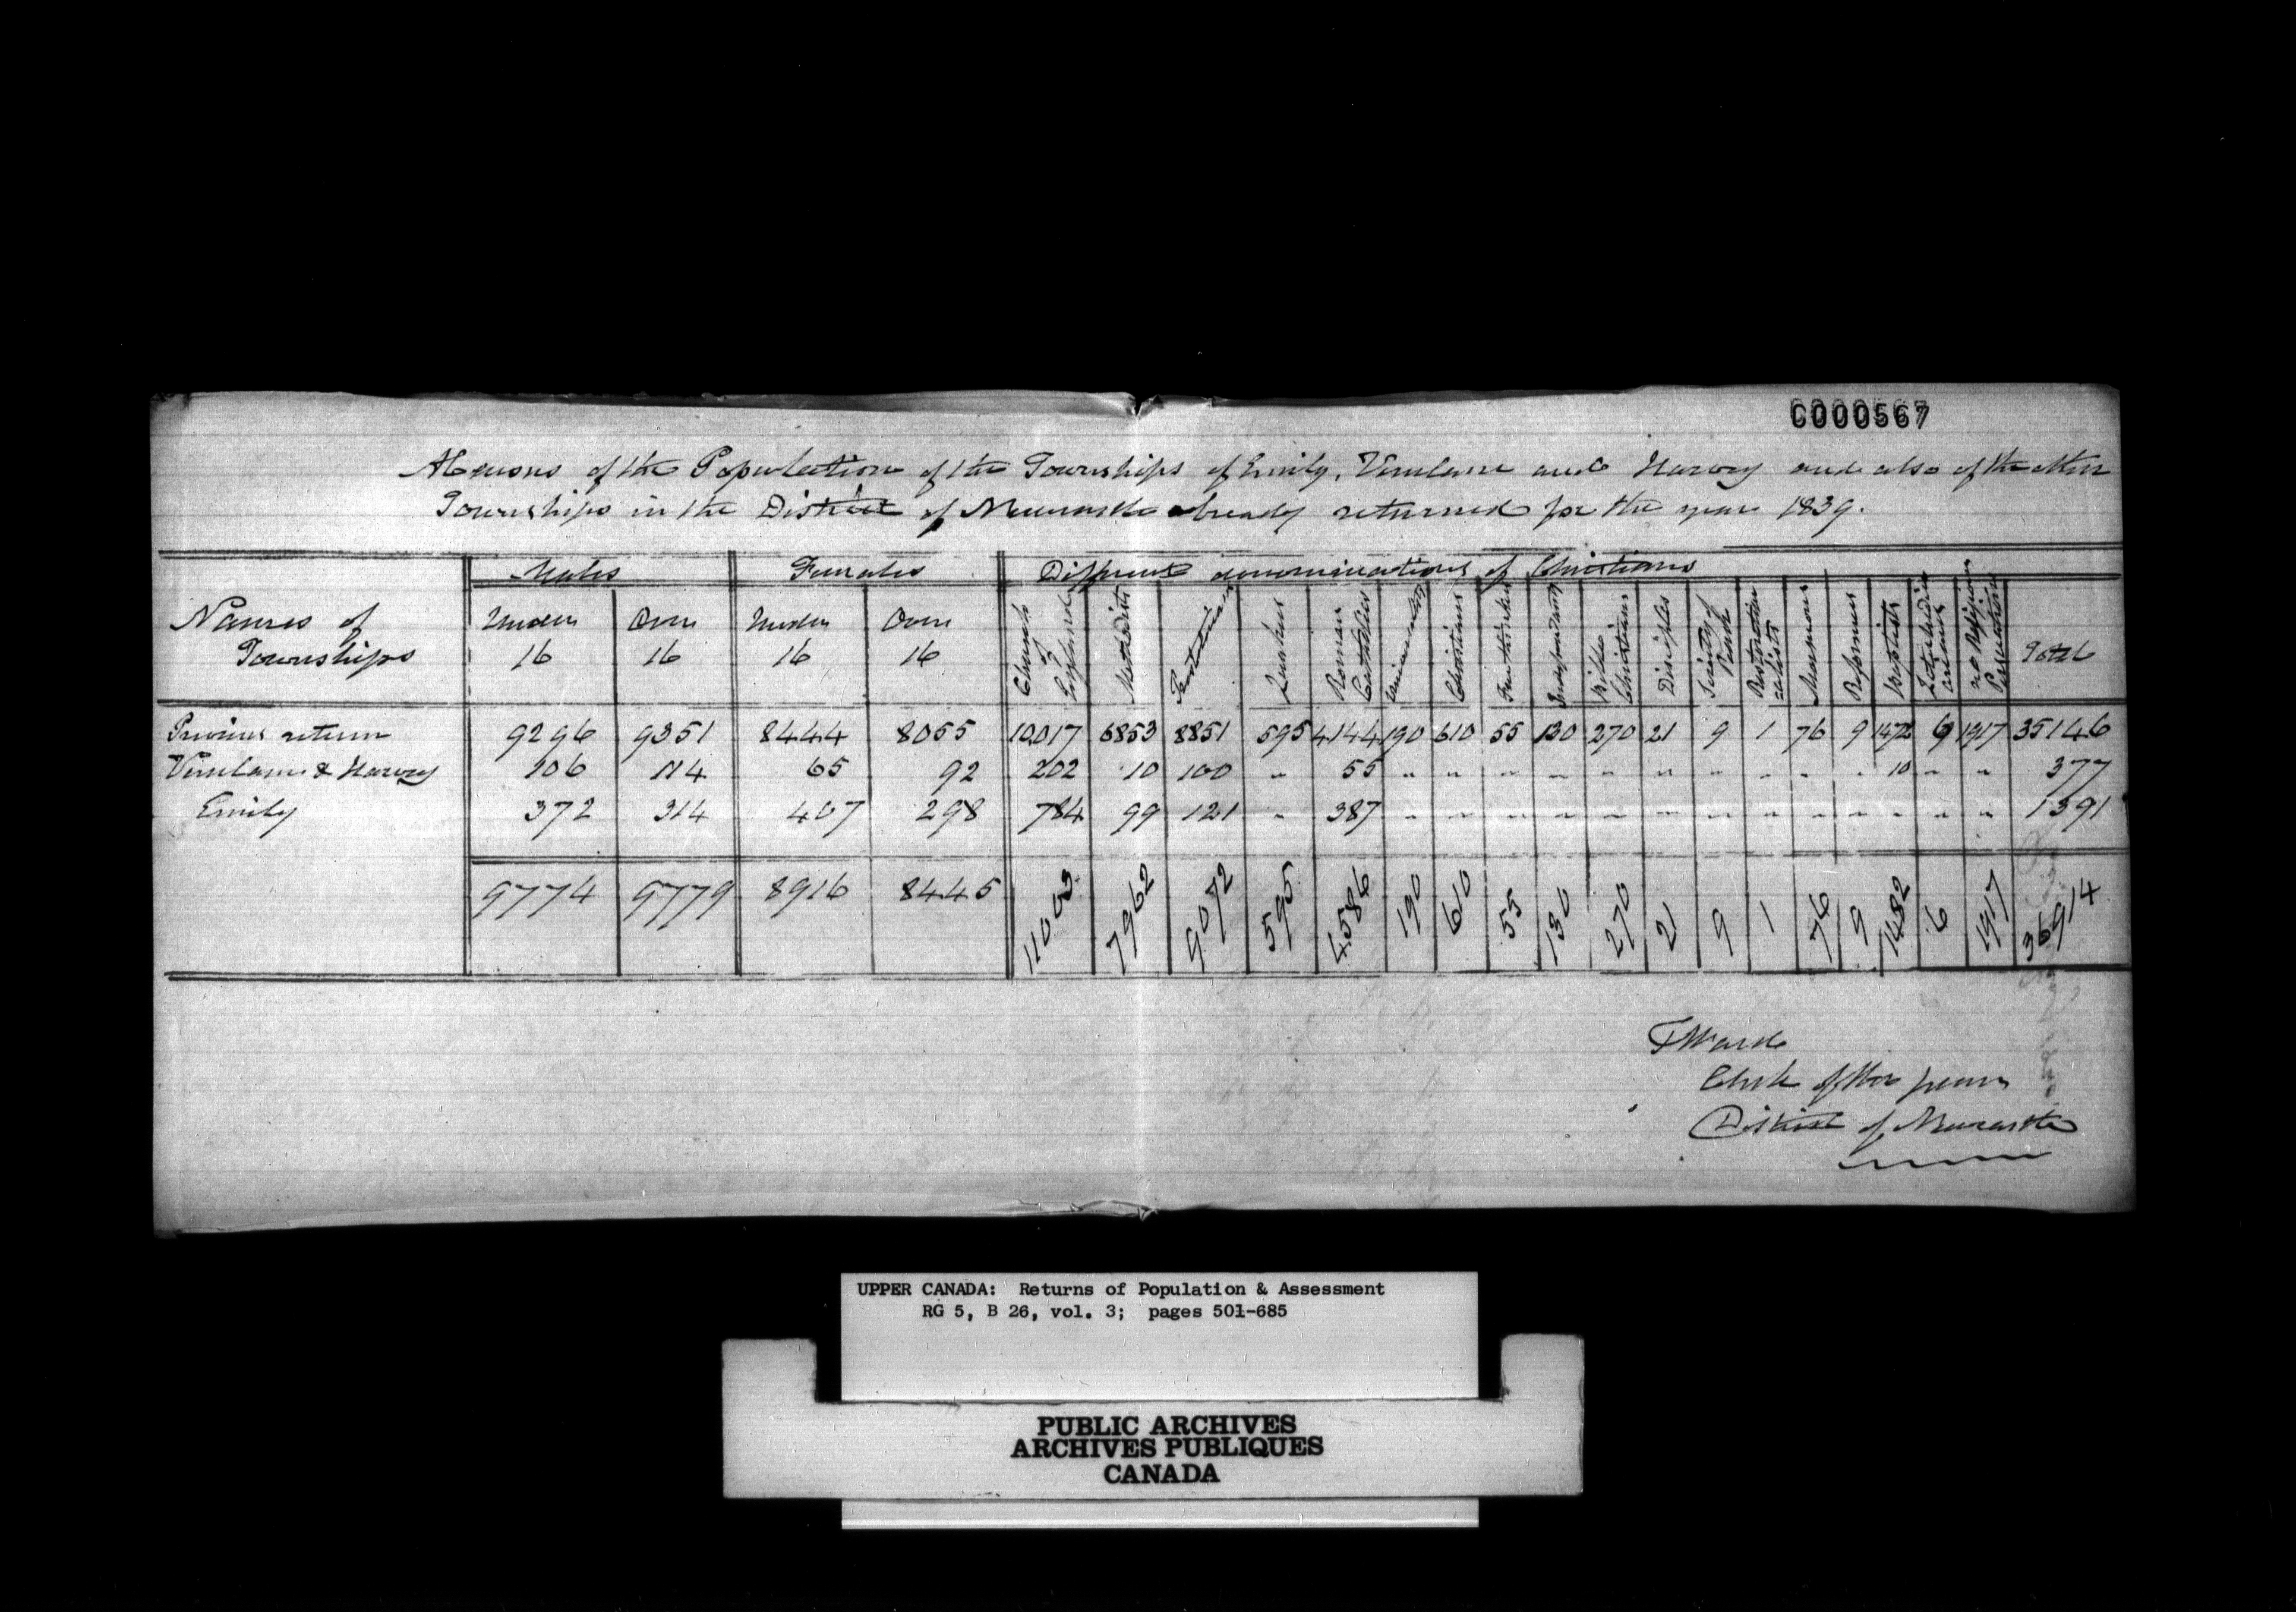 C000567
A Census of the Population of the Townships of Emily, Verulam and Harvey and also of the other
Townships in the District of Newcastle already returned for the year 1839.
Males Females Different denominations of Christians
Names of Townships Under 16 Over 16 Under 16 Over 16 Church of England Methodists Presbyterians Quakers Roman Catholics Universalists Christians Freethinkers Independants Bible Christians Disciples Restorationalists Mormons Reformers Baptists no Religious Persuasion Total
Previous return 9296 9351 8444 8055 10,017 6853 8851 595 4144 190 610 55 130 270 21 9 1 76 9 1472 6 1917 35146
Verulam & Harvey 106 114 65 92 202 10 100 " 55 " " " " " " " " " " 10 " " 377
Emily 372 314 407 298 784 99 121 " 387 " " " " " " " " " " " " " 1391
9774 9779 8916 8445 11003 7962 9072 595 4586 190 610 55 130 270 21 9 1 76 9 1482 6 1917 36914
T Ward
Clerk of the peace
District of Newcastle
UPPER CANADA: Returns of Population & Assessment
RG 5, B 26, vol. 3; pages 501-685
PUBLIC ARCHIVES
ARCHIVES PUBLIQUES
CANADA